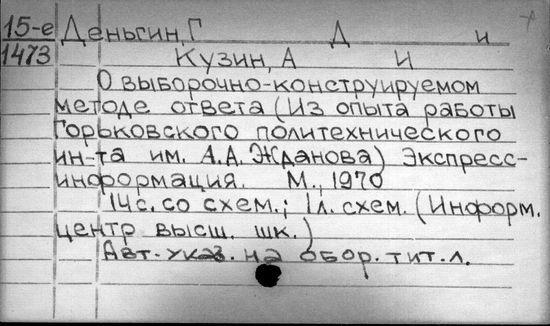 15-е Деньгин, Г Д и
1473 Кузин, А И
О выборочно-конструируемом
методе ответа (Из опыта работы
Горьковского политехнического
ин-та им. А.А. Жданова) Экспресс-
информация. М., 1970
14с. со схем.; 1л. схем. (Информ.
центр высш. шк.)
Авт. указ. на обор. тит. л.